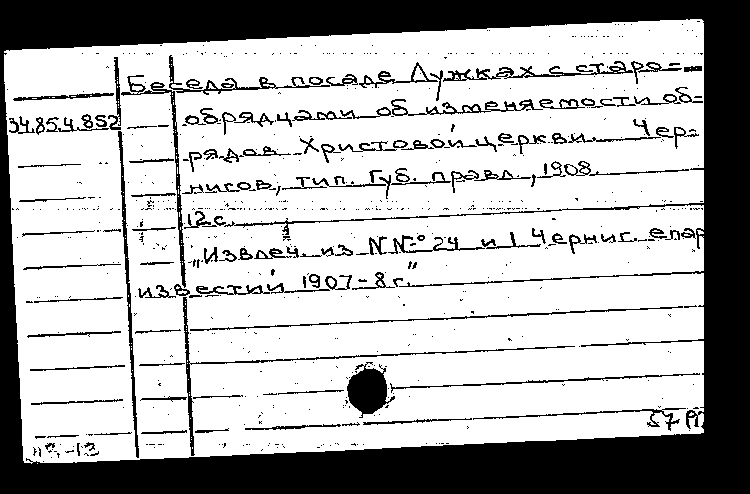 Беседа в посаде Лужках с старо=
34.85.4.852 обрядцами об изменяемости об=
рядов Христовой церкви. Чер=
нигов, тип. Губ. правл., 1908.
12 с.
„Извлеч. из NN=° 24 и 1 Черниг. епар
известий 1907-8 г."
57